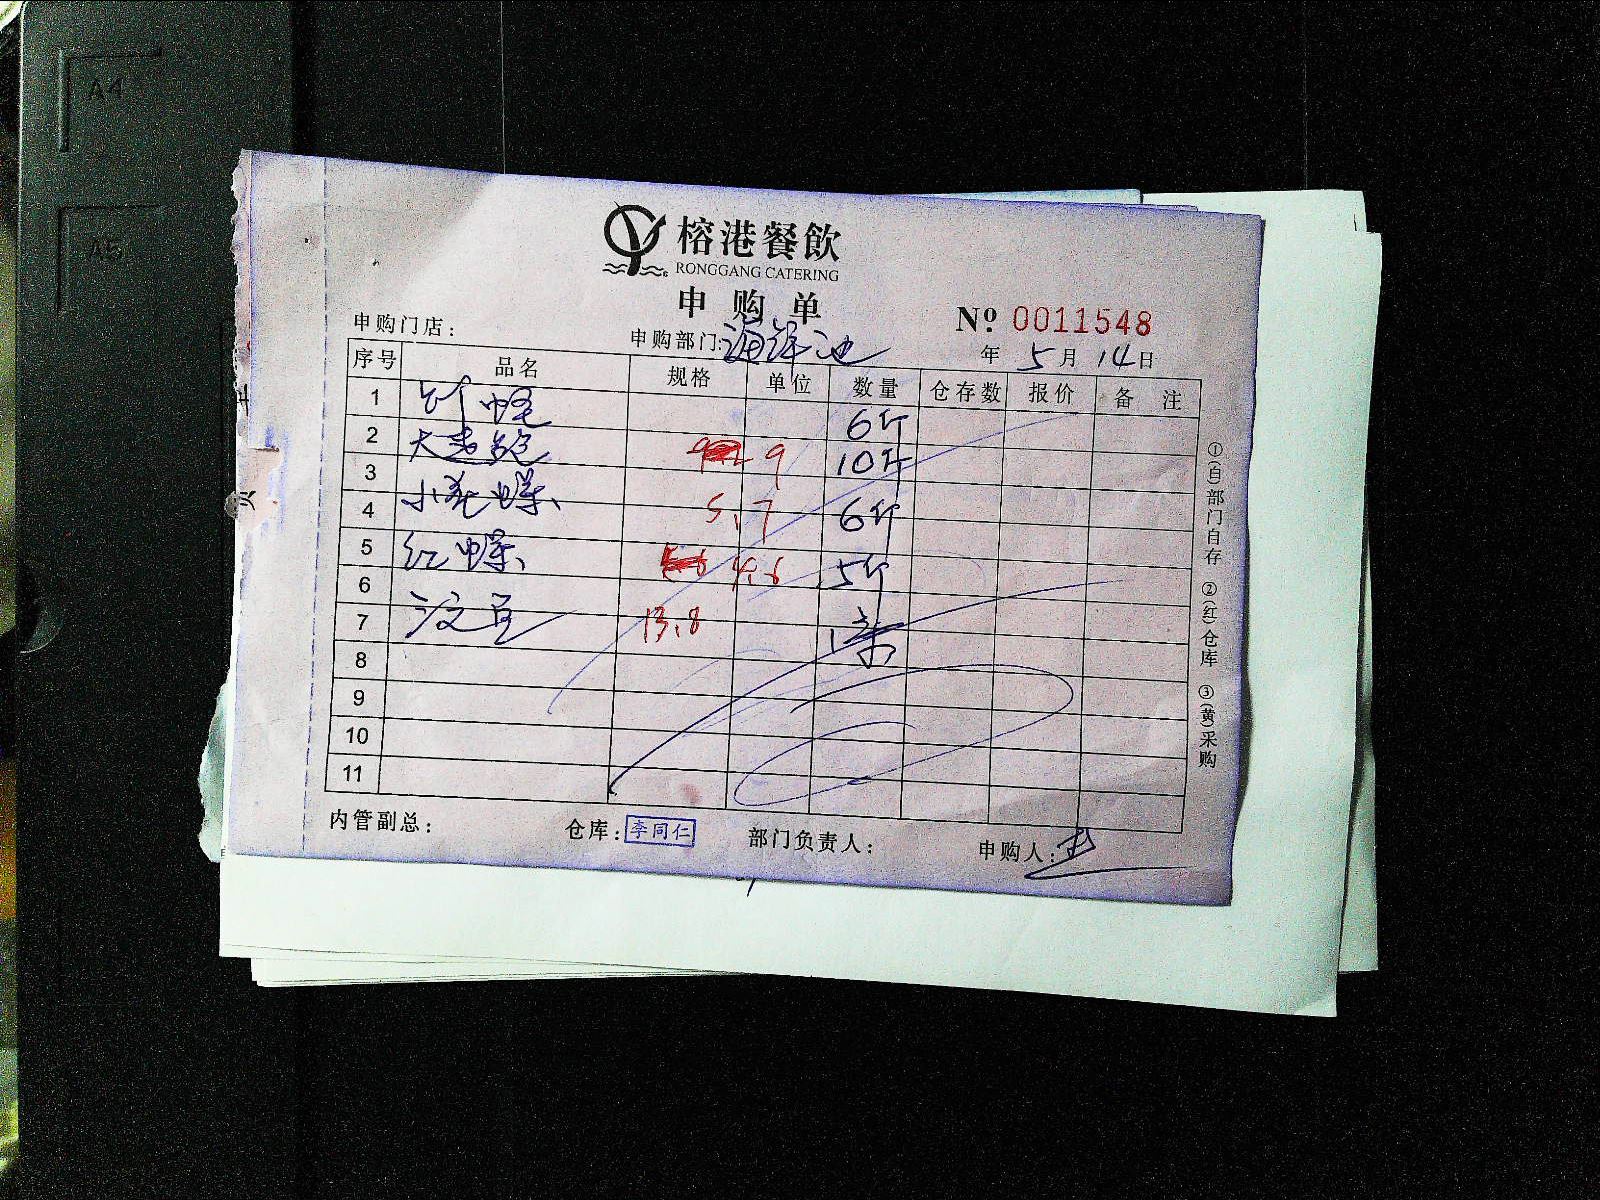 A4
A5
榕港餐飲
RONGGANG CATERING
申购单
申购门店：
申购部门：海鲜池
№ 0011548
年 5月 14日
序号 品名 规格 单位 数量 仓存数 报价 备注
1 竹蛏 6斤
2 大连鲍 9 10斤
3
4 小花螺 5.7 6斤
5 红螺 5斤
6
7 13.8 1条
8
9
10
11
①(白)部门自存 ②(红)仓库 ③(黄)采购
内管副总： 仓库：李同仁 部门负责人： 申购人：